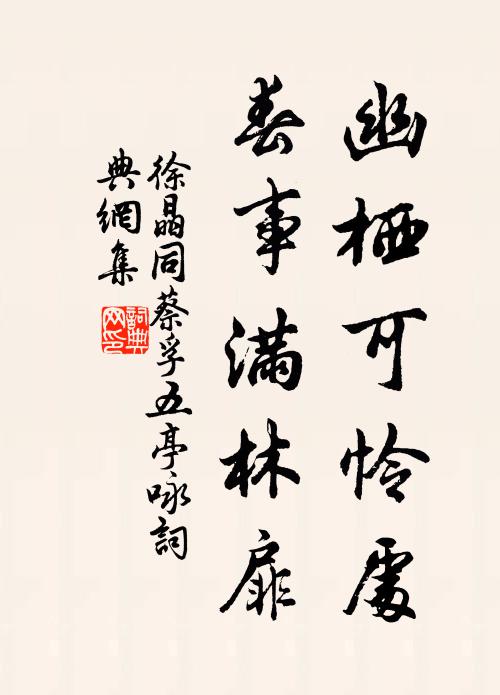 幽栖可怜處
春事满林扉
徐晶同蔡孚五亭咏詞
典網集
詞典网印